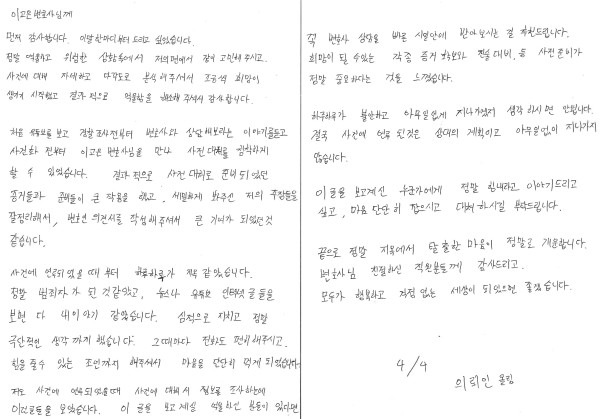 이고은 변호사님께
먼저 감사합니다. 이말 한마디부터 드리고 싶었습니다.
정말 애매하고 위험한 상황속에서 저의편에서 같이 고민해주시고.
사건에 대해 자세하고 다각도로 분석해주셔서 조금씩 희망이
생기기 시작했고 결과적으로 억울함을 해소해주셔서 감사합니다.
처음 유튜브를 보고 경찰조사전부터 변호사와 상담해보라는 이야기를듣고
사건화 전부터 이고은 변호사님을 만나 사전 대처를 완벽하게
할 수 있었습니다. 결과적으로 사전 대처로 준비 되었던
증거들과 큰 작용을 했고, 세밀하게 봐주신 저의 주장들을
잘정리해서, 변호인 의견서를 작성해주셔서 큰 기여가 되었던것
같습니다.
사건에 연루되었을 때부터 하루하루가 지옥 같았습니다.
정말 범죄자가 된 것같았고, 뉴스나 유튜브 인터넷 글들을
보면 다 내이야기 같았습니다. 심적으로 지치고 정말
극단적인 생각까지 했습니다. 그때마다 전화도 편히해주시고.
힘을줄수 있는 조언까지 해주셔서 마음을 단단히 먹게 되었습니다
저도 사건에 연루되었을때 사건에 대해서 정보를 조사하는데
이런글들을 보았습니다. 이 글을 보고계실 억울하신 분들이 있다면
꼭 변호사 상담을 빠른 시일안에 받아보시는 걸 추천드립니다.
희망이 될 수있는 각종 증거 확보와 진술 대비. 등 사전준비가
정말 중요하다는 것을 느꼈습니다.
하루하루가 불안하고 아무일없게 지나가겠지 생각하시면 안됩니다.
결국 사건에 연루된것은 상대의 계획이고 아무일없이 지나가지
않습니다.
이 글을 보고계신 누군가에게 정말 힘내라고 이야기드리고
싶고, 마음 단단히 잡으시고 대처하시길 부탁드립니다.
끝으로 정말 지옥에서 탈출한 마음이 정말로 개운합니다.
변호사님 친절하신 직원분들께 감사드리고.
모두가 행복하고 걱정 없는 세상이 되었으면 좋겠습니다.
4/4
의뢰인 올림